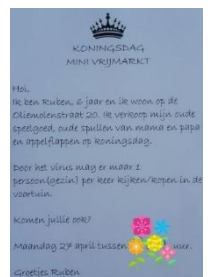 KONINGSDAG
MINI VRIJMARKT
Hoi,
Ik ben Ruben, 6 jaar en ik woon op de
Oliemolenstraat 20. Ik verkoop mijn oude
speelgoed, oude spullen van mama en papa
en appelflappen op koningsdag.
Door het virus mag er maar 1
persoon(gezin) per keer kijken/kopen in de
voortuin.
Komen jullie ook?
Maandag 27 april tussen uur.
Groetjes Ruben